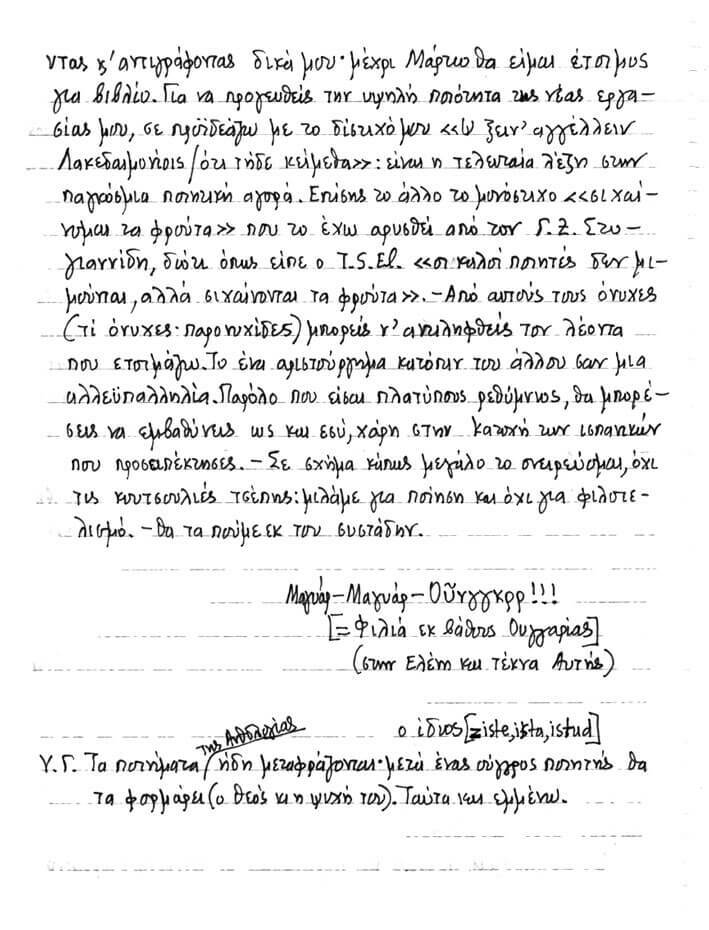 ντας κ' αντιγράφοντας δικά μου· μέχρι Μάρτιο θα είμαι έτοιμος
για βιβλίο. Για να προγευθείς την υψηλή ποιότητα της νέας εργα-
σίας μου, σε προϊδεάζω με το δίστιχό μου «Ω ξειν' αγγέλλειν
Λακεδαιμονίοις / ότι τήδε κείμεθα»: είναι η τελευταία λέξη στην
παγκόσμια ποιητική αγορά. Επίσης το άλλο το μονόστιχο «σιχαί-
νομαι τα φρούτα» που το έχω αρυσθεί από τον Γ. Ζ. Στο-
γιαννίδη, διότι όπως είπε ο T.S.El. «οι καλοί ποιητές δεν μι-
μούνται, αλλά σιχαίνονται τα φρούτα». – Από αυτούς τους όνυχες
(τί όνυχες· παρονυχίδες) μπορείς ν' αντιληφθείς τον λέοντα
που ετοιμάζω. Το ένα αριστούργημα κατόπιν του άλλου σαν μια
αλλεϋπαλληλία. Παρόλο που είσαι πλατύπους ρεθύμνιος, θα μπορέ-
σεις να εμβαθύνεις ως και εσύ, χάρη στην κατοχή των ισπανικών
που προσεπέκτησες. – Σε σχήμα κάπως μεγάλο το ονειρεύομαι, όχι
τις κουτσουλιές τσέπης: μιλάμε για ποίηση και όχι για φιλοτε-
λισμό. – Θα τα πούμε εκ του συστάδην.
Μαγυάρ – Μαγυάρ – Οῦνγγκρρ !!!
[= Φιλιά εκ βάθους Ουγγαρίας]
(στην Ελένη και τέκνα Αυτής)
ο ίδιος [= iste, ista, istud]
της Ανθολογίας
Υ.Γ. Τα ποιήματα / ήδη μεταφράζονται· μετά ένας ούγγρος ποιητής θα
τα φορμάρει (ο θεός κι η ψυχή του). Ταύτα και εμμένω.